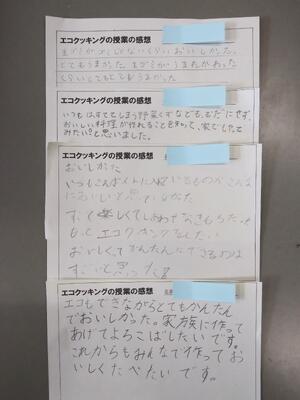 エコクッキングの授業の感想
生ゴミが少しないくらいおいしかった。
とてもうまかった 生ゴミがうまれかわった
くらいとてもとてもうまかった
エコクッキングの授業の感想
いつもはすててしまう野菜くずなども、むだにせず、
おいしい料理が作れることを知って、家でもやって
みたいと思いました。
エコクッキングの授業の感想
おいしかった
いつも入れているものがこんな
においしいと思っていなかった
すっごく楽しくてしあわせなきもちだった
もっとエコクッキングをしたい
おいしくってかんたんにできるのは
すごいと思った
エコクッキングの授業の感想
エコもできながらとてもかんたん
でおいしかった。家族に作って
あげてよろこばしたいです。
これからもみんなで作ってお
いしくたべたいです。